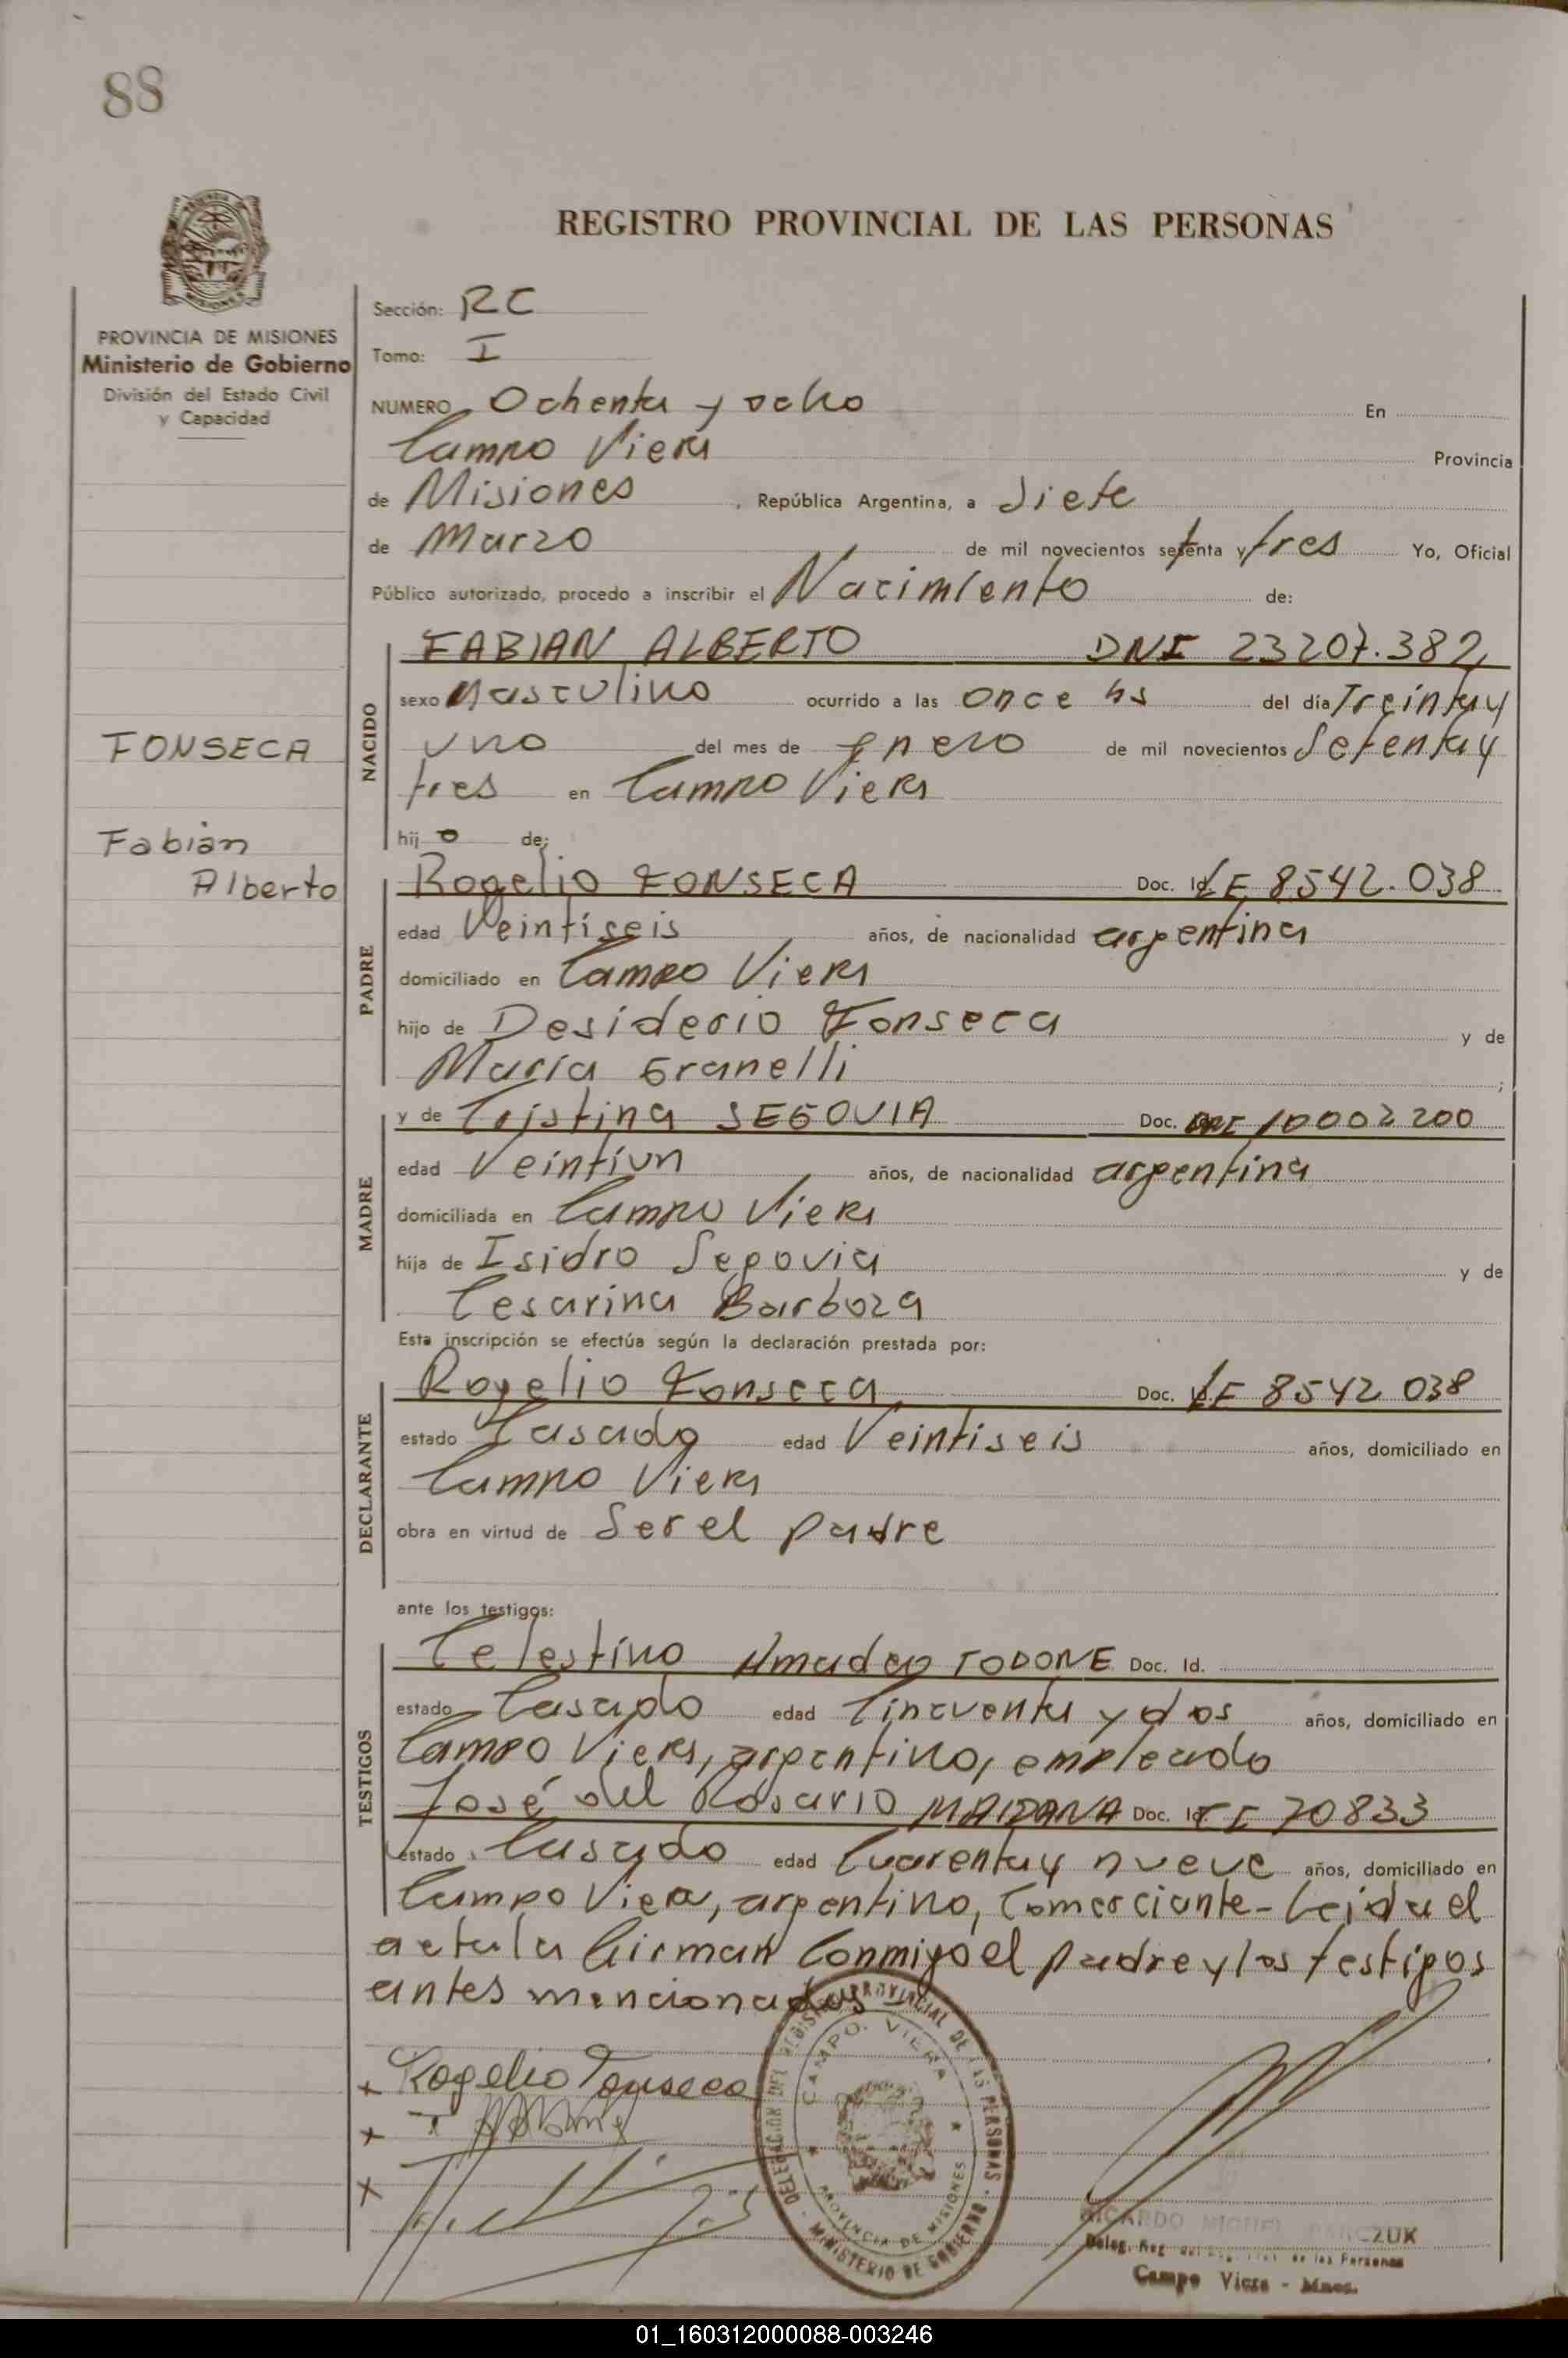 88
REGISTRO PROVINCIAL DE LAS PERSONAS
PROVINCIA DE MISIONES
Ministerio de Gobierno
División del Estado Civil
y Capacidad
FONSECA
Fabián
Alberto
Sección: RC
Tomo: I
NUMERO Ochenta y ocho En
Campo Viera Provincia
de Misiones, República Argentina, a Siete
de Marzo de mil novecientos setenta y tres Yo, Oficial
Público autorizado, procedo a inscribir el Nacimiento de:
NACIDO
FABIAN ALBERTO DNI 23207.382
sexo Masculino ocurrido a las once hs del día Treinta y
uno del mes de Enero de mil novecientos Setenta y
tres en Campo Viera
hij o de:
PADRE
Rogelio FONSECA Doc. Id. LE 8542.038
edad Veintíseis años, de nacionalidad argentina
domiciliado en Campo Viera
hijo de Desiderio Fonseca y de
María Granelli ;
MADRE
y de Cristina SEGOVIA Doc. 10002200
edad Veintiun años, de nacionalidad argentina
domiciliada en Campo Viera
hija de Isidro Segovia y de
Cesarina Barboza
Esta inscripción se efectúa según la declaración prestada por:
DECLARANTE
Rogelio Fonseca Doc. LE 8542 038
estado Casado edad Veintiseis años, domiciliado en
Campo Viera
obra en virtud de Ser el padre
ante los testigos:
TESTIGOS
Celestino Amadeo TODONE Doc. Id.
estado Casado edad Cincuenta y dos años, domiciliado en
Campo Viera, argentino, empleado
José del Rosario MAIDANA Doc. Id. CI 70833
estado Casado edad Cuarenta y nueve años, domiciliado en
Campo Viera, argentino, Comerciante - Leida el
acta la firman Conmigo el padre y los testigos
antes mencionados
x Rogelio Fonseca
x
x
DELEGACION DEL REGISTRO PROVINCIAL DE LAS PERSONAS - MINISTERIO DE GOBIERNO
CAMPO VIERA
PROVINCIA DE MISIONES
RICARDO MIGUEL
Deleg. Reg. de las Personas
Campo Viera - Mnes.
01_160312000088-003246